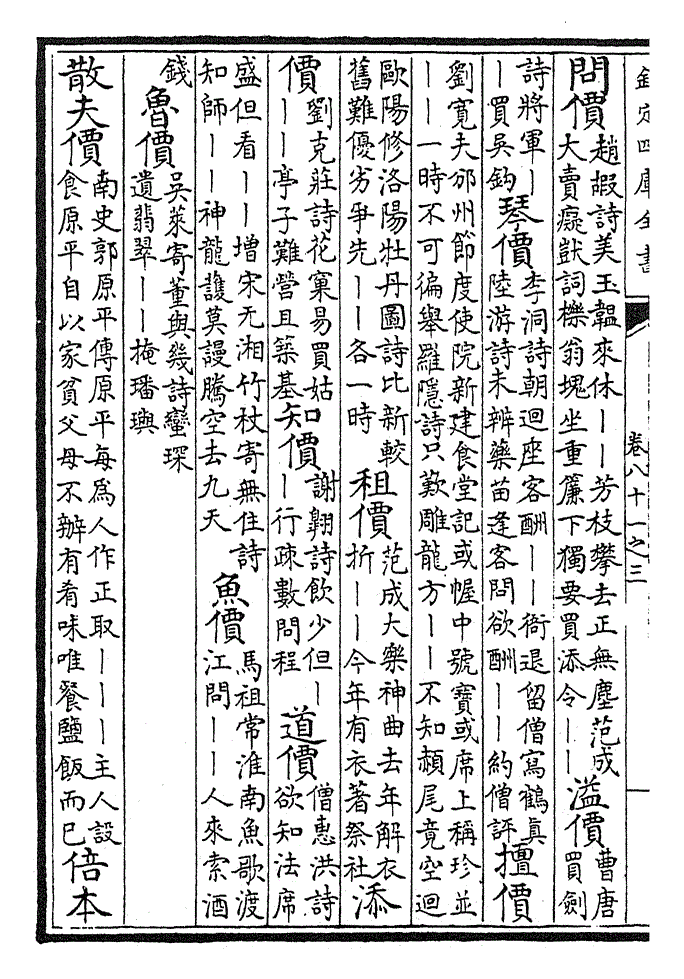 欽定四庫全書
卷八十一之三
問價
趙嘏詩美玉韞來休——芳枝攀去正無塵范成
大賣癡獃詞櫟翁塊坐重簾下獨要買添令——
溢價
曹唐
買劍
詩將軍—
—買吳鈎
琴價
李洞詩朝迴座客酬——衙退留僧寫鶴真
陸游詩未辨藥苗逢客問欲酬——約僧評
擅價
劉寛夫邠州節度使院新建食堂記或幄中號寶或席上稱珍並
——一時不可徧舉羅隱詩只歎雕龍方——不知赬尾竟空迴
歐陽修洛陽牡丹圖詩比新較
舊難優劣爭先——各一時
租價
范成大樂神曲去年解衣
折——今年有衣著祭社
添
價
劉克莊詩花窠易買姑
——亭子難營且築基
知價
謝翱詩飲少但—
—行疎數問程
道價
僧惠洪詩
欲知法席
盛但看——增宋无湘竹杖寄無住詩
知師——神龍護莫謾騰空去九天
魚價
馬祖常淮南魚歌渡
江問——人來索酒
錢
魯價
吳萊寄董與幾詩蠻琛
遺翡翠——掩璠璵
散夫價
南史郭原平傳原平每爲人作正取———主人設
食原平自以家貧父母不辦有肴味唯餐鹽飯而已
倍本